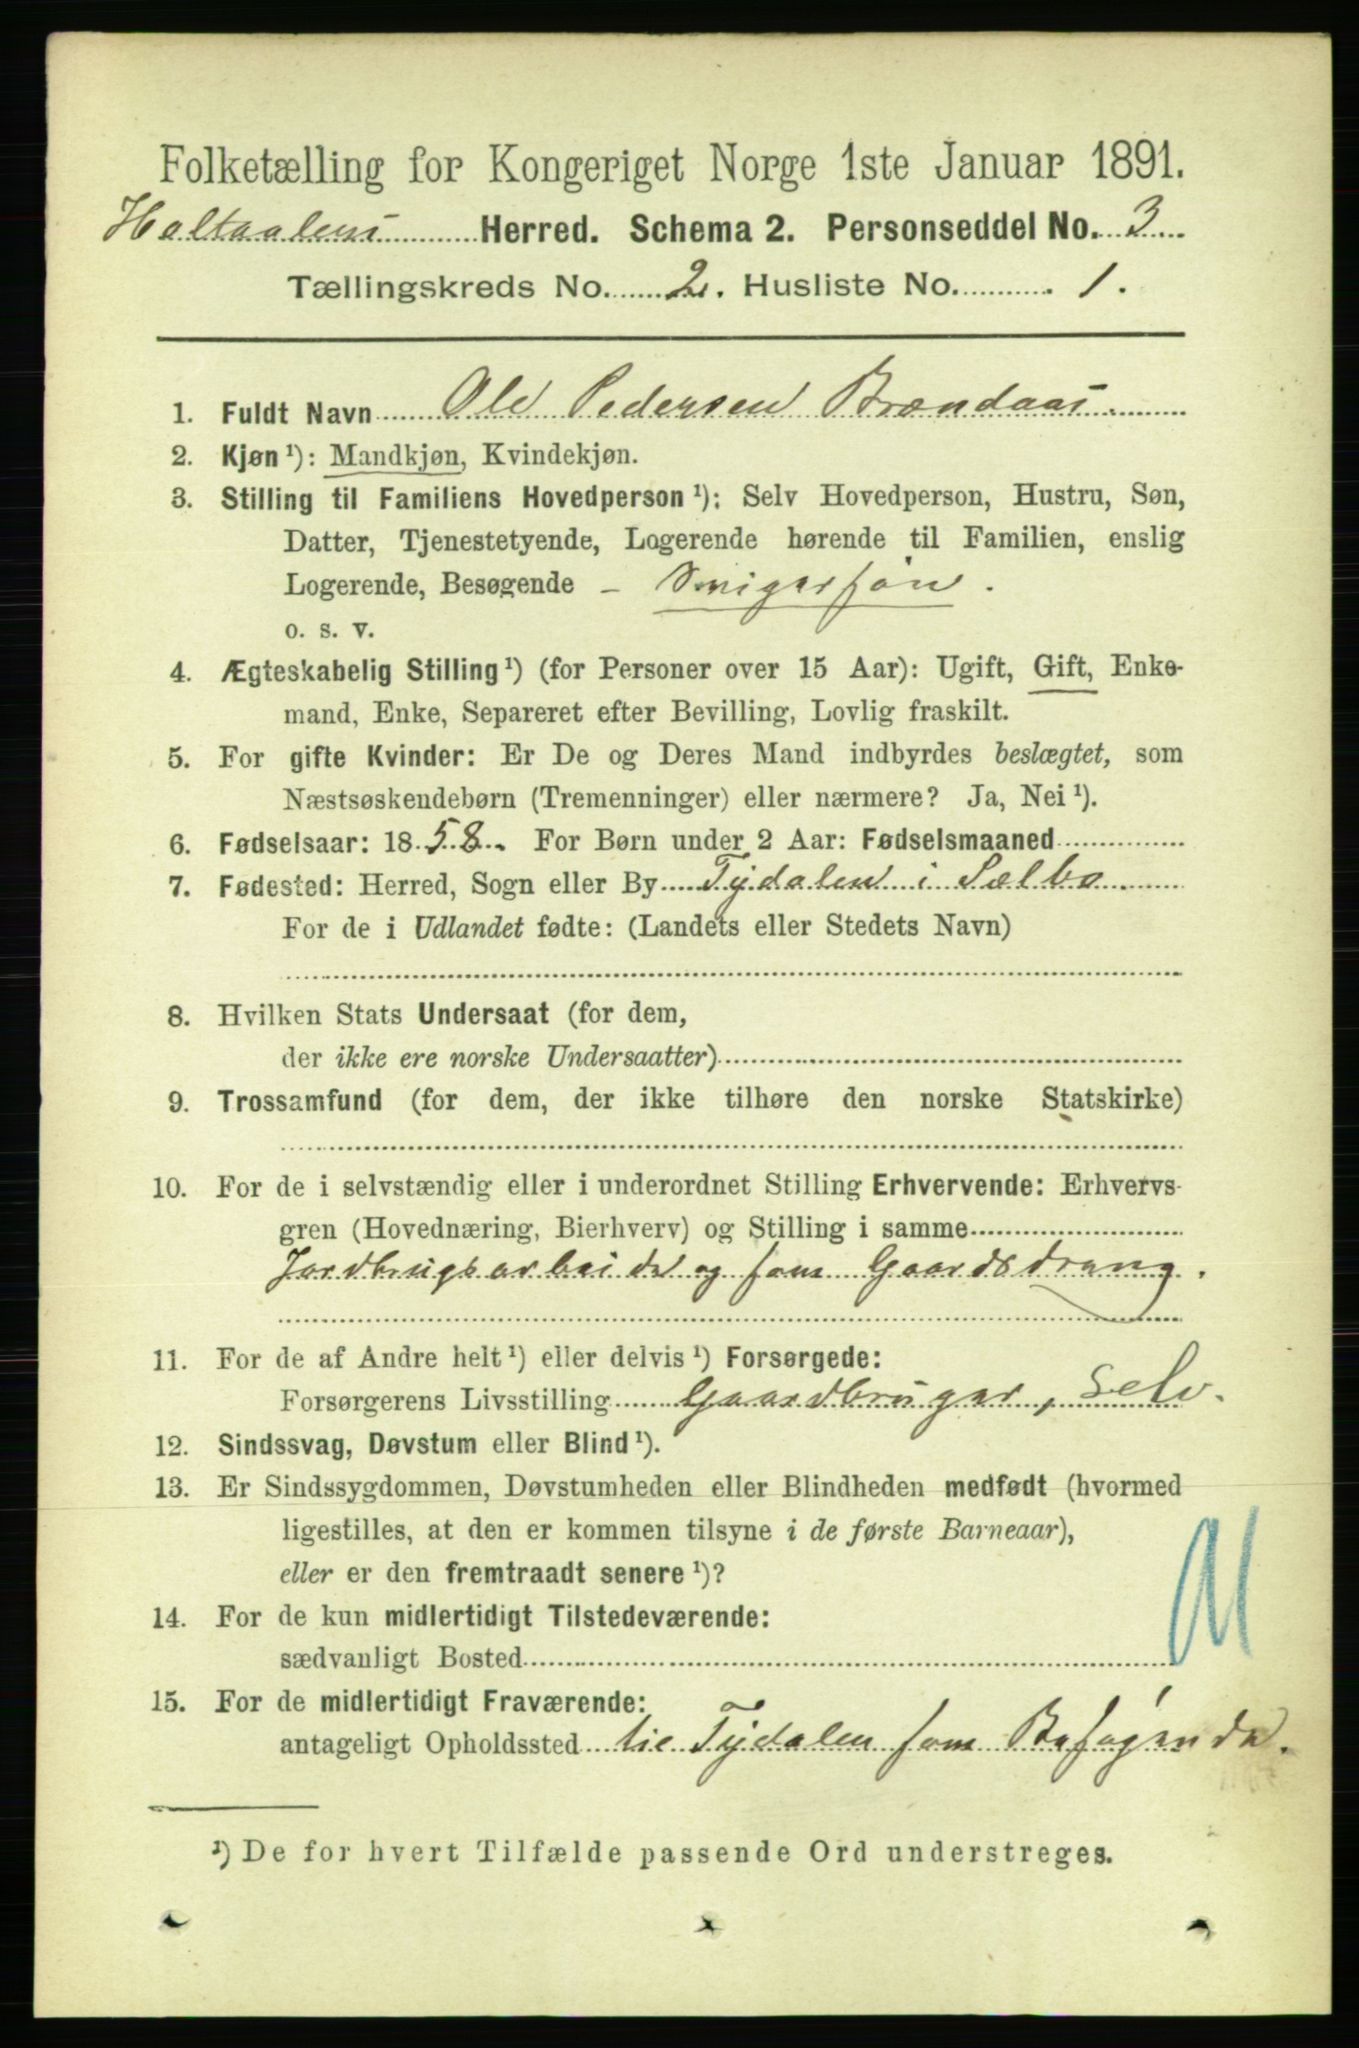 Folketælling for Kongeriget Norge 1ste Januar 1891.
Holtaalens Herred. Schema 2. Personseddel No. 3
Tællingskreds No. 2. Husliste No. 1.
1. Fuldt Navn Ole Pedersen Brændaas
2. Kjøn ¹): Mandkjøn, Kvindekjøn.
3. Stilling til Familiens Hovedperson ¹): Selv Hovedperson, Hustru, Søn,
Datter, Tjenestetyende, Logerende hørende til Familien, enslig
Logerende, Besøgende – Svigersøn.
o. s. v.
4. Ægteskabelig Stilling ¹) (for Personer over 15 Aar): Ugift, Gift, Enke-
mand, Enke, Separeret efter Bevilling, Lovlig fraskilt.
5. For gifte Kvinder: Er De og Deres Mand indbyrdes beslægtet, som
Næstsøskendebørn (Tremenninger) eller nærmere? Ja, Nei ¹).
6. Fødselsaar: 1858. For Børn under 2 Aar: Fødselsmaaned
7. Fødested: Herred, Sogn eller By Tydalen i Sælbo.
For de i Udlandet fødte: (Landets eller Stedets Navn)
8. Hvilken Stats Undersaat (for dem,
der ikke ere norske Undersaatter)
9. Trossamfund (for dem, der ikke tilhøre den norske Statskirke)
10. For de i selvstændig eller i underordnet Stilling Erhvervende: Erhvervs-
gren (Hovednæring, Bierhverv) og Stilling i samme
Jordbrugsarbeide og som Gaardsdreng.
11. For de af Andre helt ¹) eller delvis ¹) Forsørgede:
Forsørgerens Livsstilling Gaardbruger, selv.
12. Sindssvag, Døvstum eller Blind ¹).
13. Er Sindssygdommen, Døvstumheden eller Blindheden medfødt (hvormed
ligestilles, at den er kommen tilsyne i de første Barneaar),
eller er den fremtraadt senere ¹)?
14. For de kun midlertidigt Tilstedeværende:
sædvanligt Bosted
15. For de midlertidigt Fraværende:
antageligt Opholdssted i Tydalen som Besøgende.
¹) De for hvert Tilfælde passende Ord understreges.